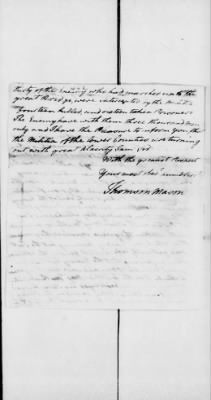 Party of the Enemy who had marched up to the
great Bridge, were intercepted by the Militia
fourteen killed, and sixteen taken Prisoners
The Enemy have with them three thousand men
only and I have the Pleasure to inform you, that
the Militia of the lower Counties are turning
out with great Alacrity I am Sir
With the greatest Respect
Your most Obt
Thomson Mason